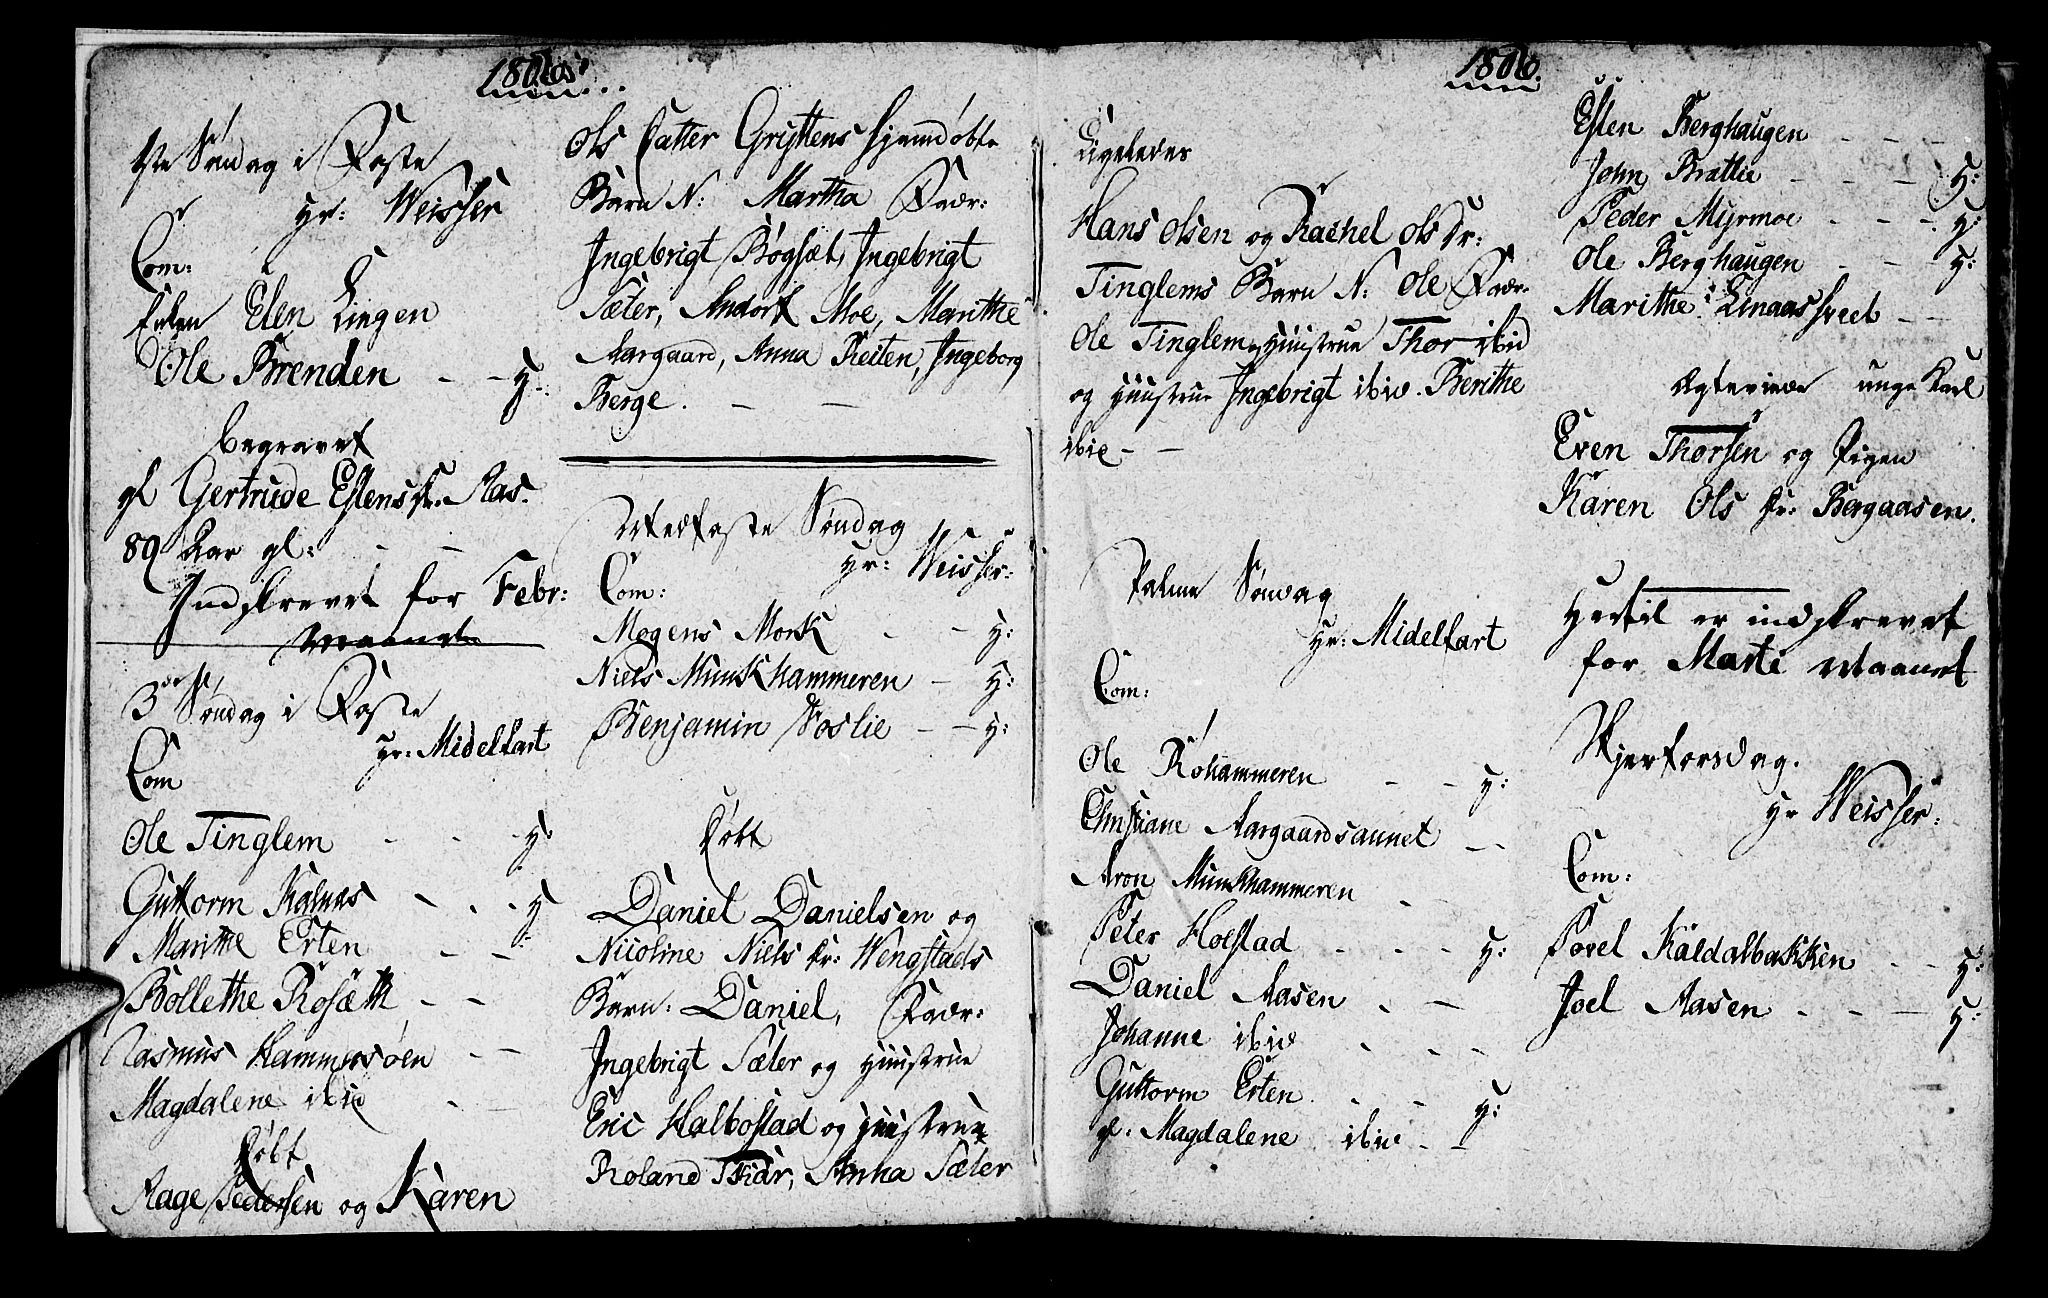 1806.
1ste Søndag i Faste
Hr: Weisser
Com:
Enken Elen Lingen
Ole Brenden - - H:
begravet
gl Gertrude Estensdr. Aas.
89 Aar gl: - -
Indskrevet for Febr:
Maanet
3die Søndag i Faste
Hr: Midelfart
Com
Ole Tinglem - - - H:
Guttorm Kalnes - - - H:
Marithe Erten - -
Bollethe Rosæth - -
Rasmus Hammersøen - -
Magdalene ibid - -
Døbt
Aage Pedersen og Karen
Ols Datter Gryttens hjemdøbte
Barn N: Martha Fadr:
Ingebrigt Bøgsæt, Ingebrigt
Sæter, Andors Moe, Marithe
Aargaard, Anna Reiten, Ingeborg
Berge. - -
Midfaste Søndag
Hr: Weisser:
Com:
Mogens Mork - - H:
Niels Munkhammeren - H:
Benjamin Voslie - - H:
Døbt
Daniel Danielsen og
Nicoline Niels dr: Wengstads
Barn: Daniel, Fadr:
Ingebrigt Sæter og Huustrue
Eric Halbostad og Huustrue
Roland Skar, Anna Sæter
1806.
Ligeledes
Hans Olsen og Rachel Ols Dr:
Tinglems Barn N: Ole Fadr:
Ole Tinglem og Huustrue Thor ibid
og Huustrue Ingebrigt ibid. Berithe
ibid - -
Palme Søndag
Hr: Midelfart
Com:
Ole Røhammeren - - H:
Christiane Aargaardsaunet - -
Aron Munkhammeren - -
Peter Holstad - - - H:
Daniel Aasen - -
Johanne ibid - - -
Guttorm Erten. - - H:
gl. Magdalene ibid - -
Esten Berghaugen - - -
John Brattlie - - - H:
Peder Myrmoe - - - H:
Ole Berghaugen - - H:
Marithe Linaas hveet - -
Egteviede unge Karl
Even Thorsen og Pigen
Karen Ols dr: Bergaasen.
Hertil er indskrevet
for Marti Maanet
Skjertorsdag.
Hr Weisser:
Com:
Povel Kaldalbakken - - H:
Joel Aasen - - - H: